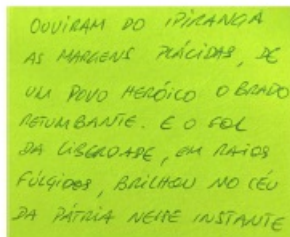 OUVIRAM DO IPIRANGA
AS MARGENS PLÁCIDAS, DE
UM POVO HERÓICO O BRADO
RETUMBANTE. E O SOL
DA LIBERDADE, EM RAIOS
FÚLGIDOS, BRILHOU NO CÉU
DA PÁTRIA NESSE INSTANTE